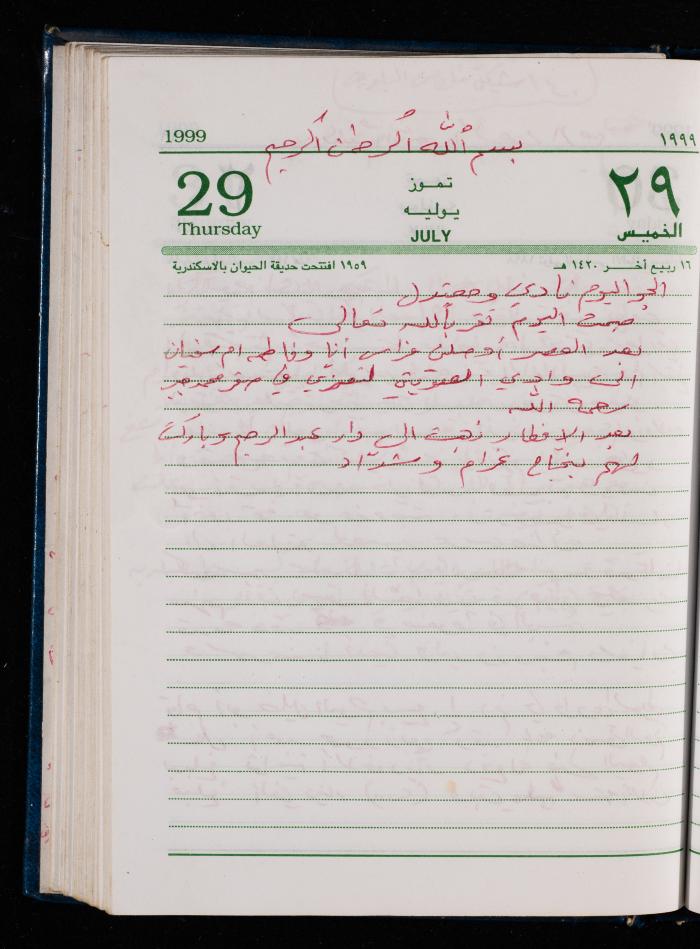 1999 ١٩٩٩
بسم الله الرحمن الرحيم
29 تمـوز ٢٩
Thursday يوليـه الخميس
JULY
١٦ ربيع آخـر ١٤٢٠ هـ ١٩٥٩ افتتحت حديقة الحيوان بالاسكندرية
الجو اليوم نادي ومعتدل
صمت اليوم تقرباً لله تعالى
بعد العصر أوصلن أنا وفاطمه ام سفيان
الى وادي لنعزي في
رحمه الله
بعد الافطار ذهبت الى دار عبد الرحيم وباركت
لهم بنجاح غرام وشداد